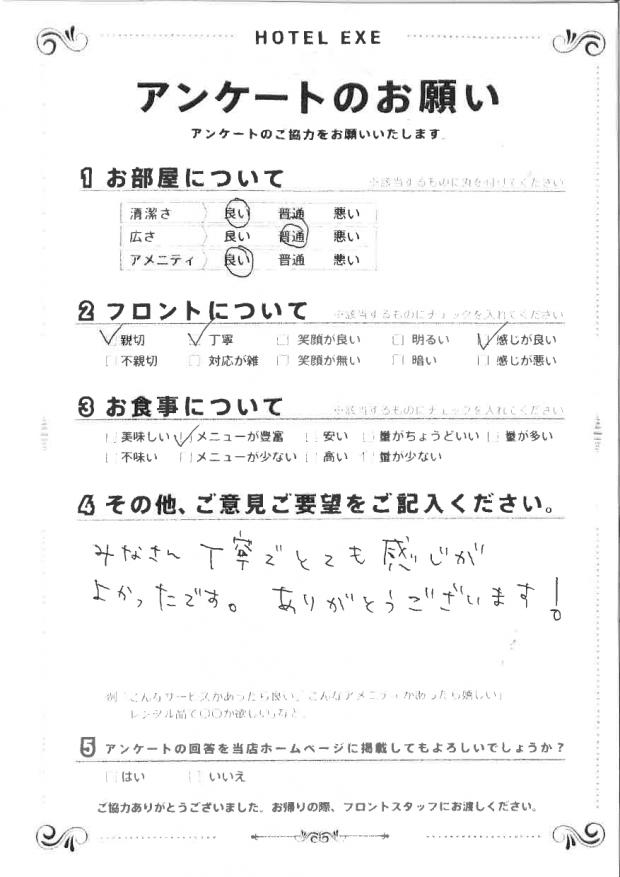 HOTEL EXE
アンケートのお願い
アンケートのご協力をお願いいたします。
1 お部屋について ※該当するものに丸を付けてください
清潔さ 良い 普通 悪い
広さ 良い 普通 悪い
アメニティ 良い 普通 悪い
2 フロントについて ※該当するものにチェックを入れてください
親切 丁寧 笑顔が良い 明るい 感じが良い
不親切 対応が雑 笑顔が無い 暗い 感じが悪い
3 お食事について ※該当するものにチェックを入れてください
美味しい メニューが豊富 安い 量がちょうどいい 量が多い
不味い メニューが少ない 高い 量が少ない
4 その他、ご意見ご要望をご記入ください。
みなさん 丁寧でとても感じが
よかったです。 ありがとうございます!
例「こんなサービスがあったら良い」「こんなアメニティがあったら嬉しい」
レンタル品で〇〇が欲しいなど。
5 アンケートの回答を当店ホームページに掲載してもよろしいでしょうか?
はい いいえ
ご協力ありがとうございました。お帰りの際、フロントスタッフにお渡しください。